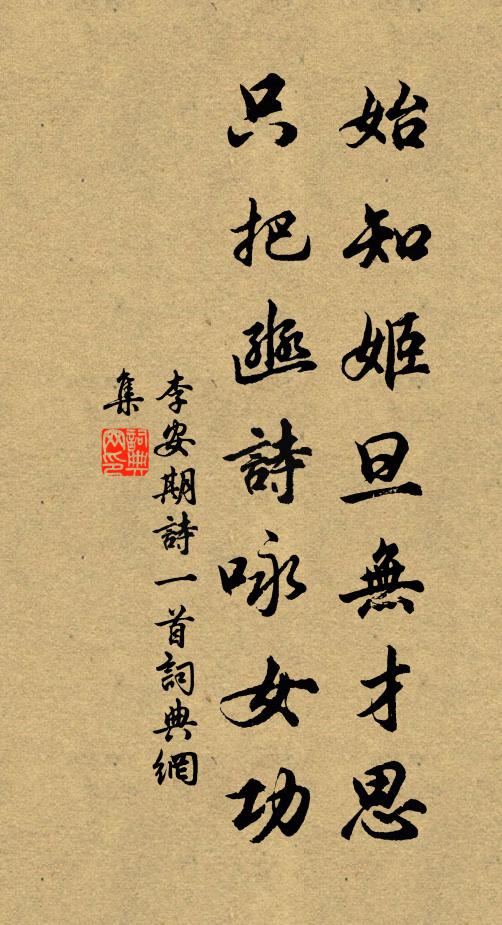 始知姬旦無才思
只把豳詩咏女功
李安期詩一首詞典網
集
詞典網印